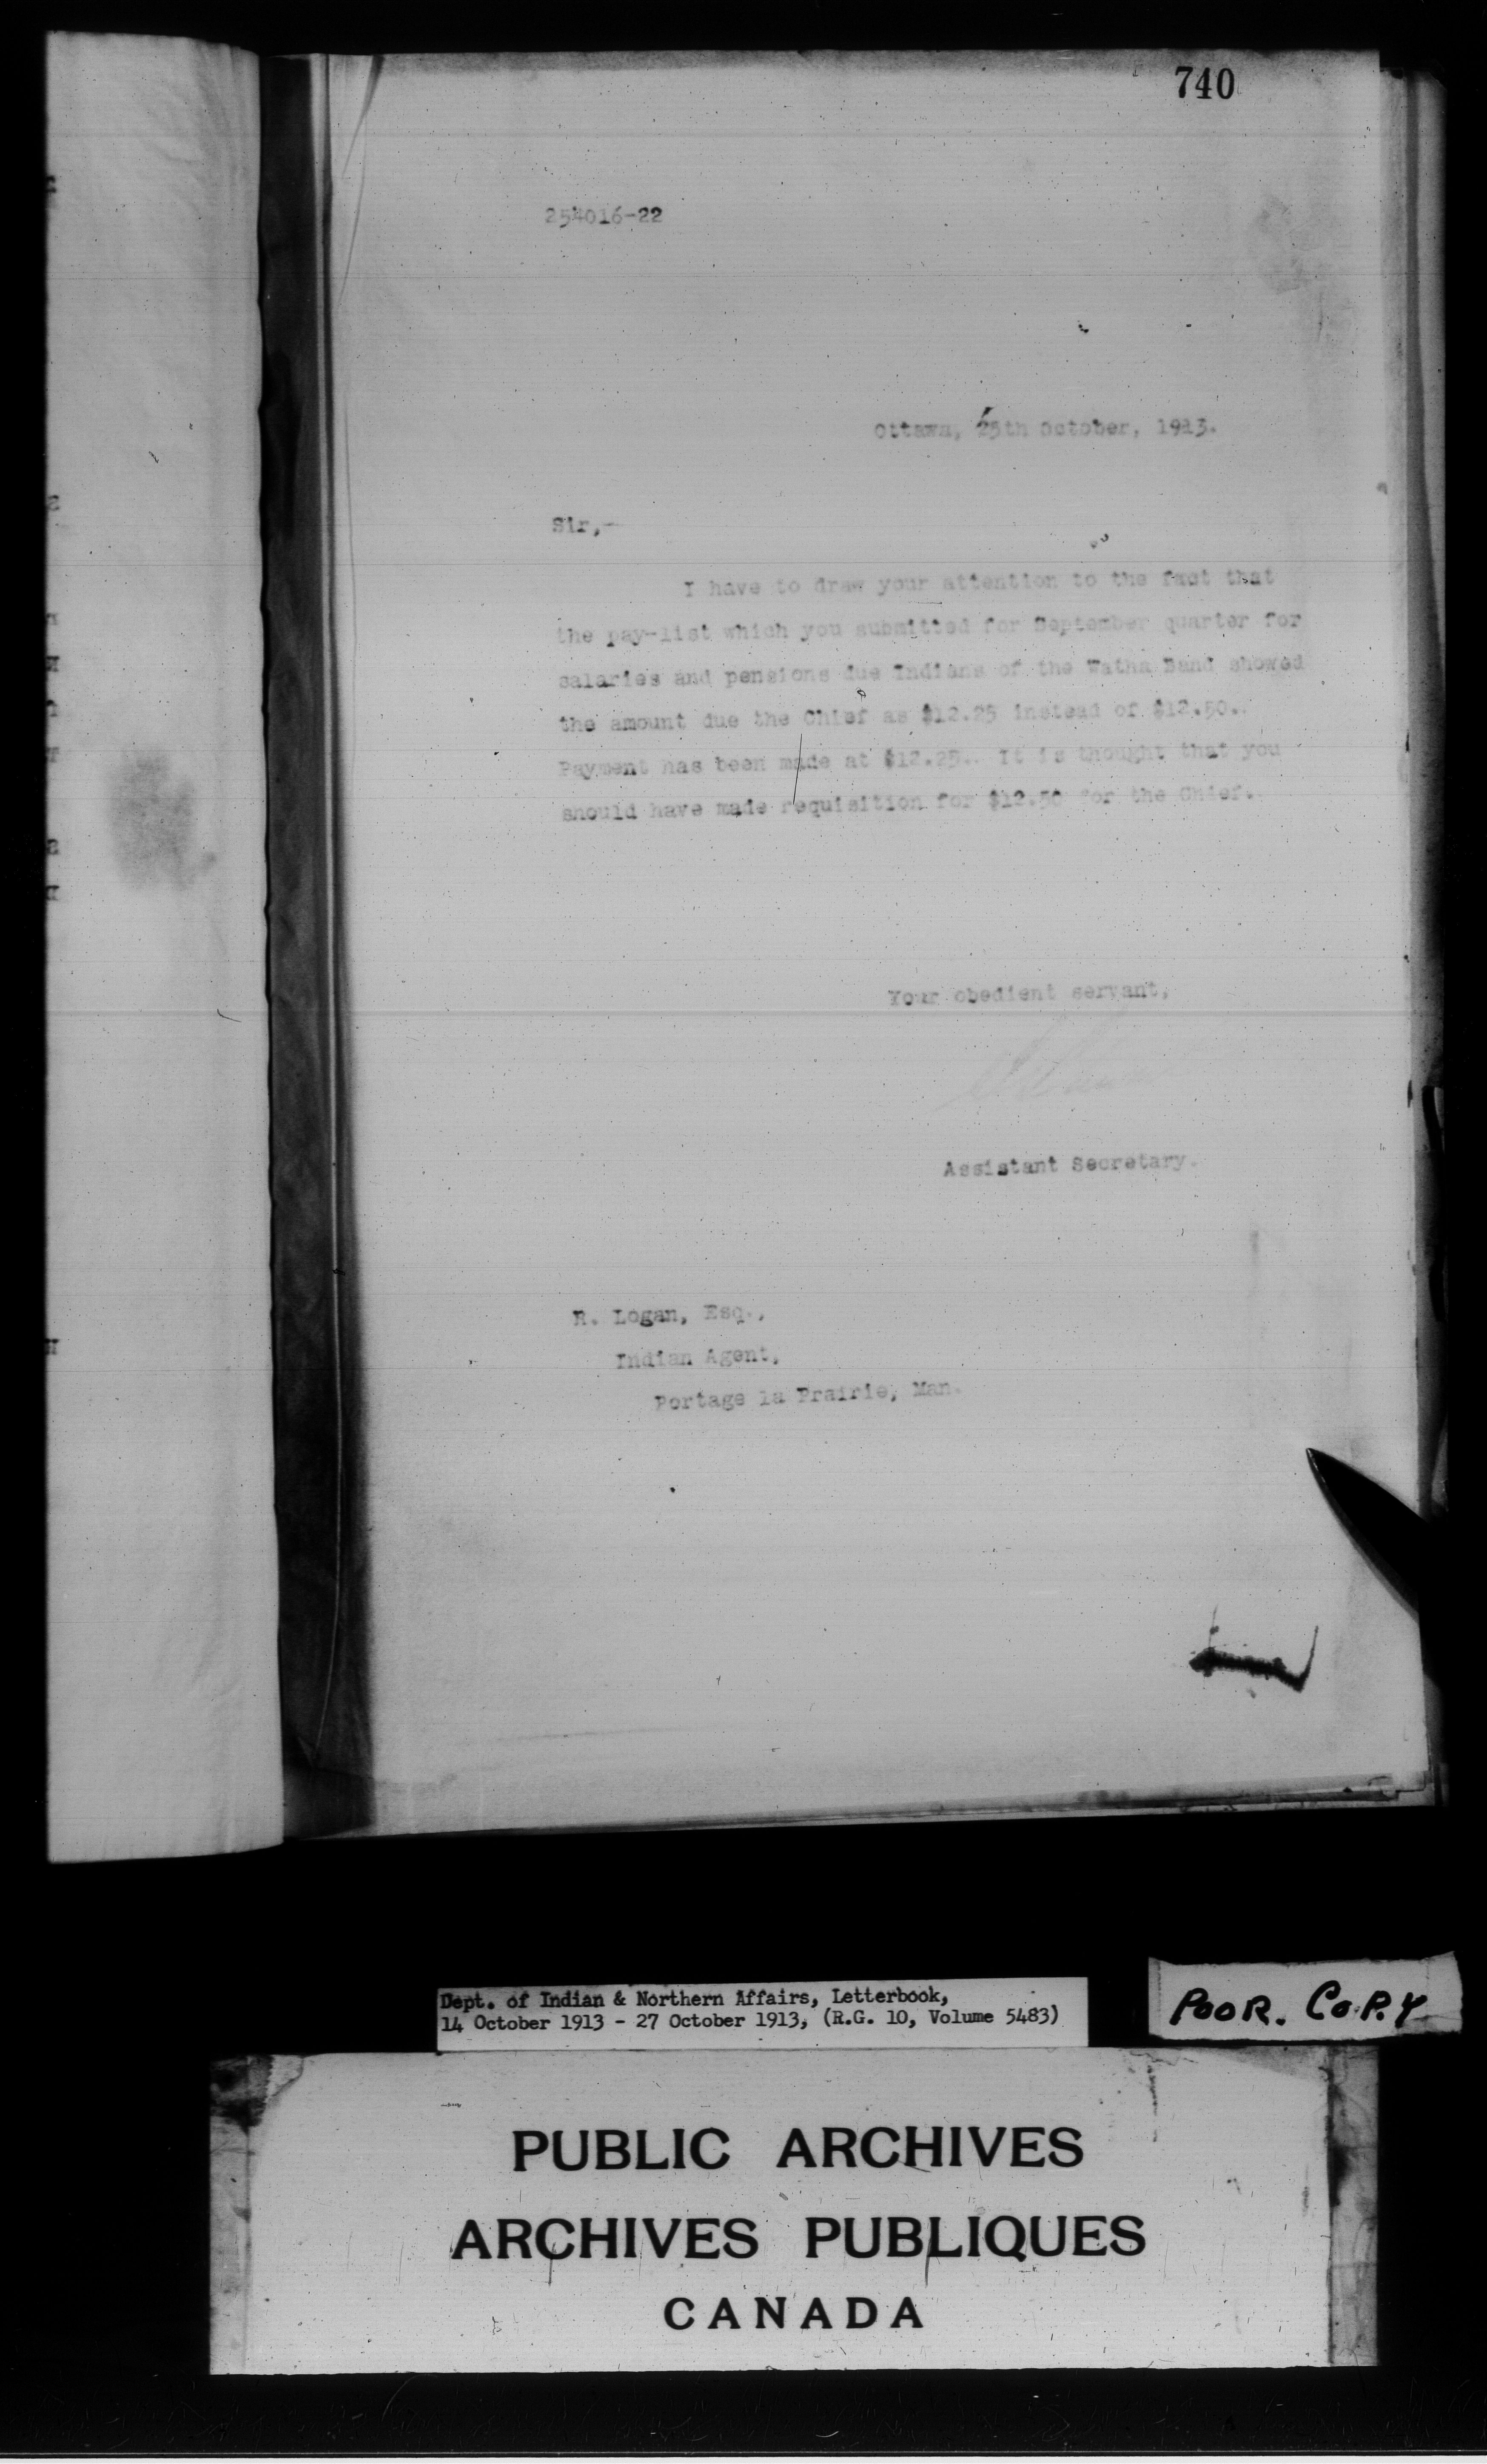 740
254016-22
Ottawa, 25th October, 1913.
Sir,-
I have to draw your attention to the fact that
the pay-list which you submitted for September quarter for
salaries and pensions due Indians of the Watha Band showed
the amount due the Chief as $12.25 instead of $12.50.
Payment has been made at $12.25. It is thought that you
should have made requisition for $12.50 for the Chief.
Your obedient servant,
Assistant Secretary.
R. Logan, Esq.,
Indian Agent,
Portage la Prairie, Man.
Dept. of Indian & Northern Affairs, Letterbook,
14 October 1913 - 27 October 1913, (R.G. 10, Volume 5483)
POOR. COPY
PUBLIC ARCHIVES
ARCHIVES PUBLIQUES
CANADA